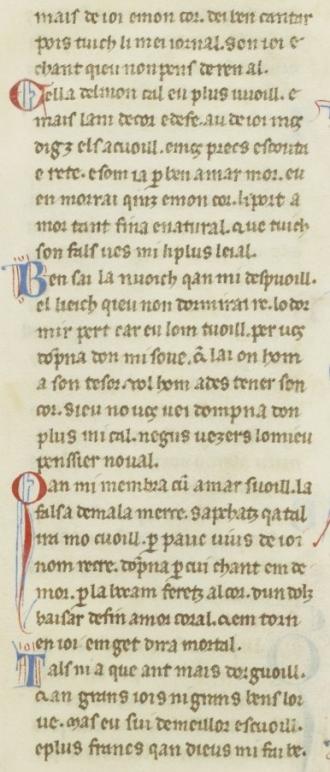 mais de ioi emon cor. dei ben cantar
pois tuich li mei iornal. son ioi e
chant qieu non pens de ren al.
Cella del mon cal eu plus vuoill. e
mais lam de cor e de fe. au de ioi mos
digz e ls acuoill. e mos precs escouta
e rete. e som ia ꝑ ben amar mor. eu
en morrai quinz e mon cor. li port a
mor tant fina e natural. que tuich
son fals ves mi li plus leial.
Ben sai la nuoich qan mi despuoill.
el lieich qieu non dormirai re. lo dor
mir pert car eu lom tuoill. per vos
dōpna don mi sove. q̄ lai on hom
a son tesor. vol hom ades tener son
cor. sieu no vos vei dompna don
plus mi cal. negus vezers lo mieu
penssier no val.
Qan mi membra cū amar suoill. la
falsa de mala merce. sapchatz qa tal
ira mo cuoill. ꝑ pauc vius de ioi
nom recre. dōpna ꝑ cui chant em de
mor. ꝑ la bocam feretz al cor. dun dolz
baisar de fin amor coral. qem torn
en ioi em get dira mortal.
Tals ni a que ant mais dorguoill.
qan grans iois ni grans bens lor
ve. mas eu sui de meillor escuoill.
e plus francs qan dieus mi fai be.